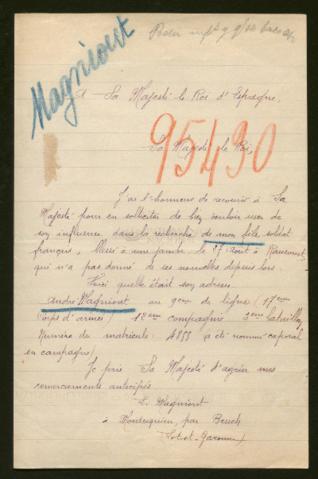 Magniont
A Sa Majesté le Roi d'Espagne.
95430
Sa Majesté le Roi,
J'ai l'honneur de recourir à Sa
Majesté pour en solliciter de bien vouloir user de
son influence dans la recherche de mon fils, soldat
français, blessé à une jambe le 27 août à Raucourt,
qui n'a pas donné de ses nouvelles depuis lors.
Voici quelle était son adresse.
André Magniont au 9eme de ligne (17eme
Corps d'armée) 12eme compagnie
Numéro de matricule: A855 a été nommé caporal
en campagne)
Je prie Sa Majesté d'agréer mes
remerciements anticipés
Magniont
à par
Lot-et-Garonne